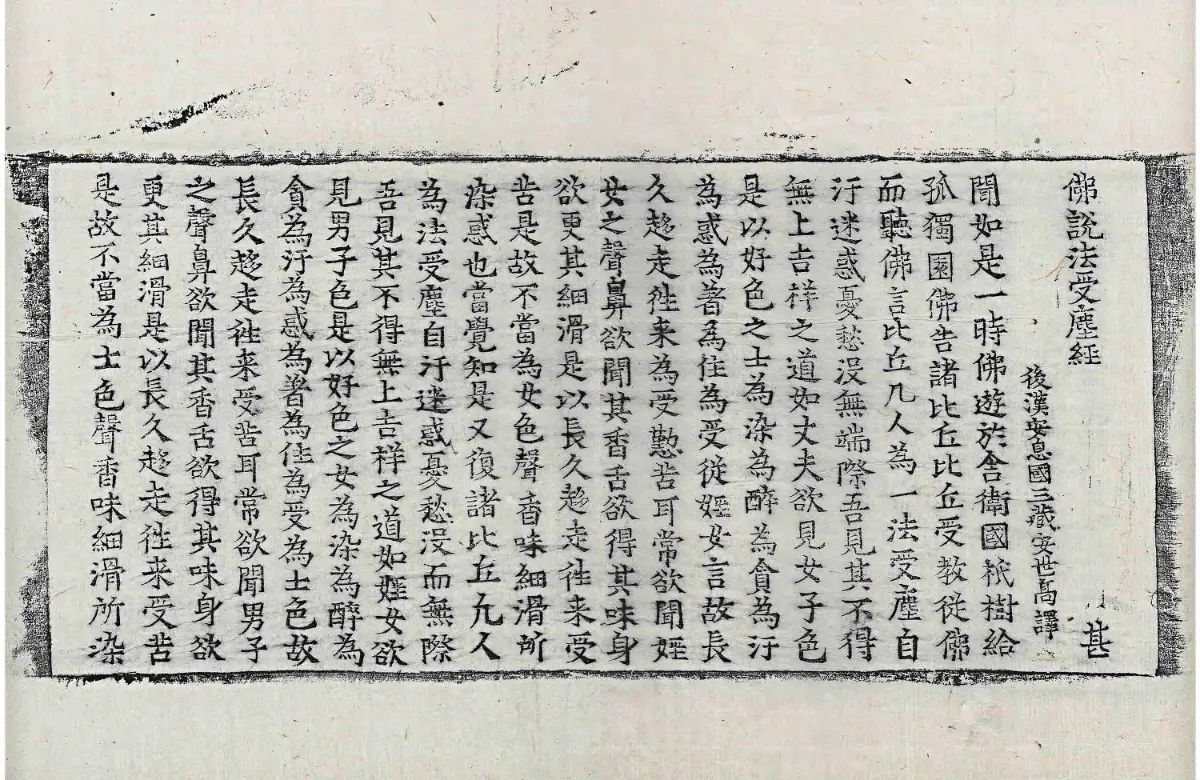 佛說法受塵經 甚
後漢安息國三藏安世高譯
聞如是一時佛遊於舍衛國祇樹給
孤獨園佛告諸比丘比丘受教從佛
而聽佛言比丘凡人為一法受塵自
汙迷惑憂愁没無端際吾見其不得
無上吉祥之道如丈夫欲見女子色
是以好色之士為染為醉為貪為汙
為惑為著為住為受從婬女言故長
久趍走徃来為受懃苦耳常欲聞婬
女之聲鼻欲聞其香舌欲得其味身
欲更其細滑是以長久趍走徃来受
苦是故不當為女色聲香味細滑所
染惑也當覺知是又復諸比丘凡人
為法受塵自汙迷惑憂愁没而無際
吾見其不得無上吉祥之道如婬女欲
見男子色是以好色之女為染為醉為
貪為汙為惑為著為住為受為士色故
長久趍走徃来受苦耳常欲聞男子
之聲鼻欲聞其香舌欲得其味身欲
更其細滑是以長久趍走徃来受苦
是故不當為士色聲香味細滑所染